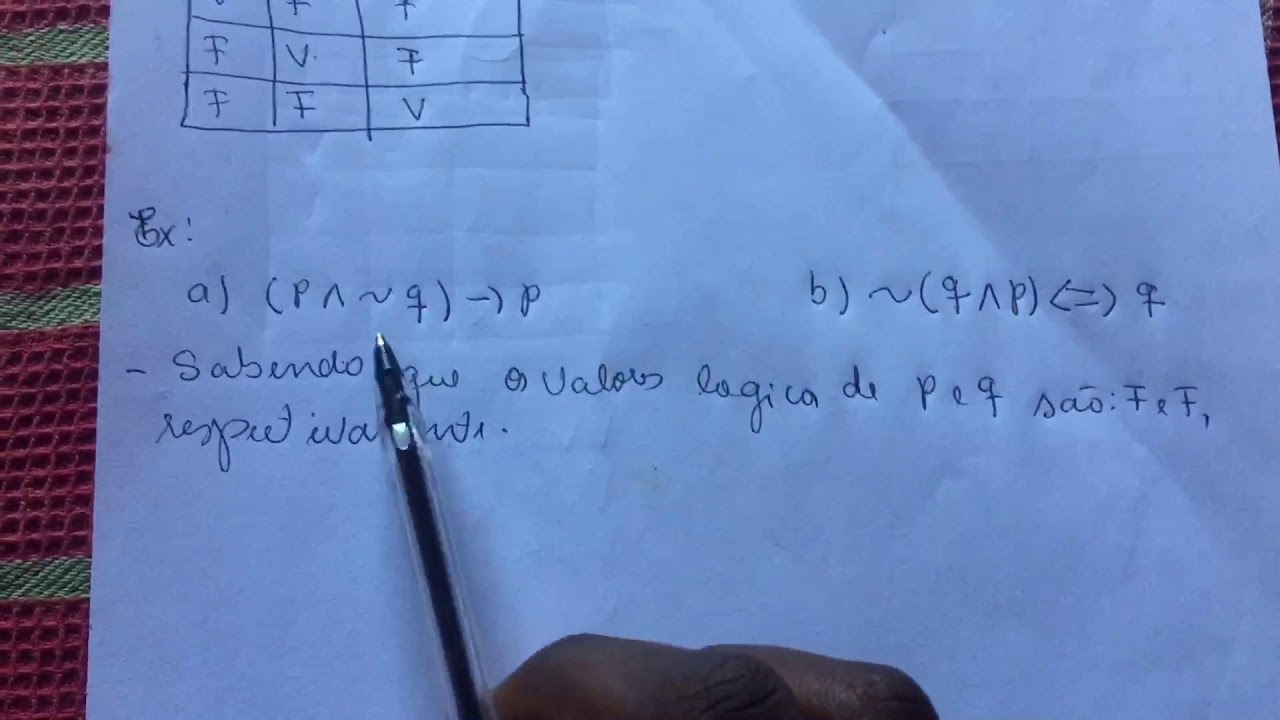 V F F
F V. F
F F V
Ex:
a) (p ∧ ~ q) → p
b) ~ (q ∧ p) ⇔ q
- Sabendo que os valores logica de p e q são: F e F,
respectivamente.